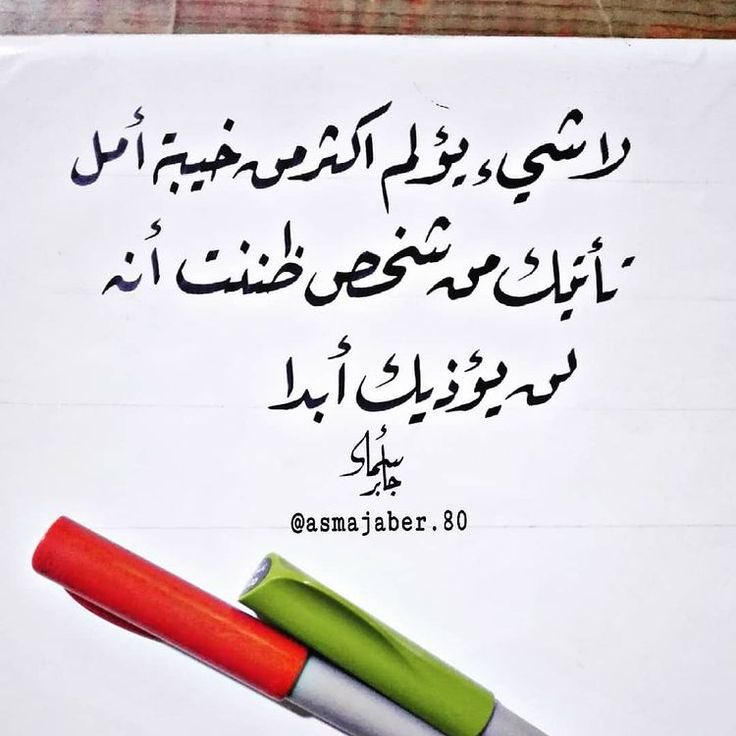 لا شيء يؤلم اكثر من خيبة أمل
تأتيك من شخص ظننت أنه
لن يؤذيك أبدا
أسماء
جابر
@asmajaber.80